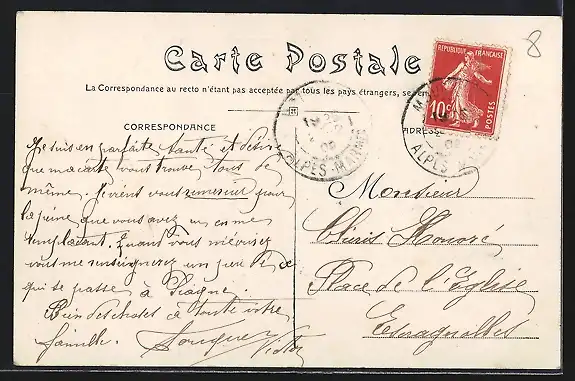 8
Carte Postale
RÉPUBLIQUE FRANÇAISE
10c
POSTES
La Correspondance au recto n'étant pas acceptée par tous les pays étrangers, se
CORRESPONDANCE
ADRESSE
ALPES MARIT
ALPES M
Je suis en parfaite santé et désire
que ma carte vous trouve tous de
même. Je viens vous remercier pour
la peine que vous avez eu en me
remplaçant. Quand vous m'écrirez
vous me renseignerez un peu de ce
qui se passe à
Bien des choses à toute votre
famille.
Victor
Monsieur
Honoré
Place de l'Eglise
Escragnolles